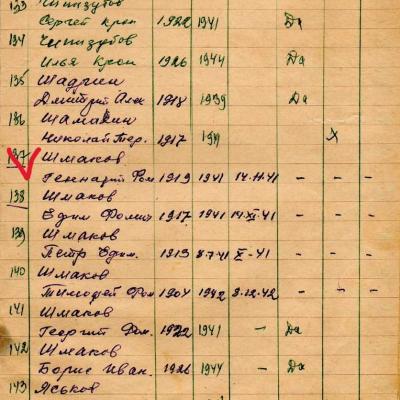 133 Чипизубов
Сергей Крон 1922 1941 Да
134 Чипизубов
Илья Крон 1926 1944 Да
135 Шадрин
Дмитрий Алек 1918 1939 Да
136 Шамакин
Николай Тер. 1917 Х
137 Шмаков
Геннадий Фом 1919 1941 14.11.41 - - -
138 Шмаков
Ефим Фомич 1917 1941 - - -
139 Шмаков
Петр Ефим. 1913 8.7.41 X-41 - - -
140 Шмаков
Тимофей Фом 1904 1942 8.12.42 - - -
141 Шмаков
Георгий Фом. 1922 1941 - Да
142 Шмаков
Борис Иван. 1926 1944 - Да
143 Яськов